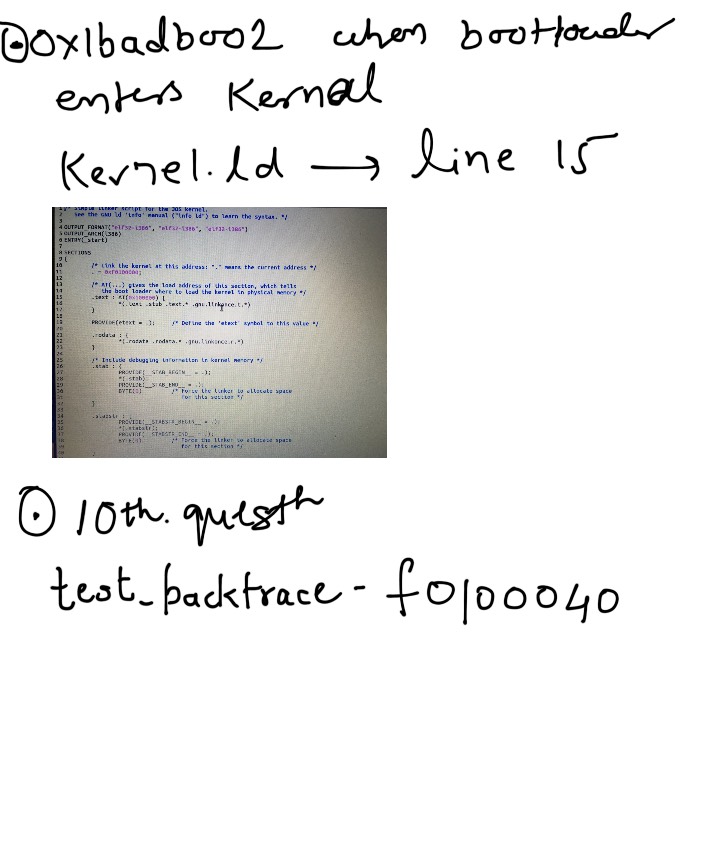 0x1badb002 when bootloader
enters Kernal
Kernel.ld → line 15
1 /* Simple linker script for the JOS kernel.
2 See the GNU ld 'info' manual ("info ld") to learn the syntax. */
3
4 OUTPUT_FORMAT("elf32-i386", "elf32-i386", "elf32-i386")
5 OUTPUT_ARCH(i386)
6 ENTRY(_start)
7
8 SECTIONS
9 {
10 /* Link the kernel at this address: "." means the current address */
11 . = 0xF0100000;
12
13 /* AT(...) gives the load address of this section, which tells
14 the boot loader where to load the kernel in physical memory */
15 .text : AT(0x100000) {
16 *(.text .stub .text.* .gnu.linkonce.t.*)
17 }
18
19 PROVIDE(etext = .); /* Define the 'etext' symbol to this value */
20
21 .rodata : {
22 *(.rodata .rodata.* .gnu.linkonce.r.*)
23 }
24
25 /* Include debugging information in kernel memory */
26 .stab : {
27 PROVIDE(__STAB_BEGIN__ = .);
28 *(.stab);
29 PROVIDE(__STAB_END__ = .);
30 BYTE(0) /* Force the linker to allocate space
31 for this section */
32 }
33
34 .stabstr : {
35 PROVIDE(__STABSTR_BEGIN__ = .);
36 *(.stabstr);
37 PROVIDE(__STABSTR_END__ = .);
38 BYTE(0) /* Force the linker to allocate space
39 for this section */
10th. questn
test_backtrace - f0100040